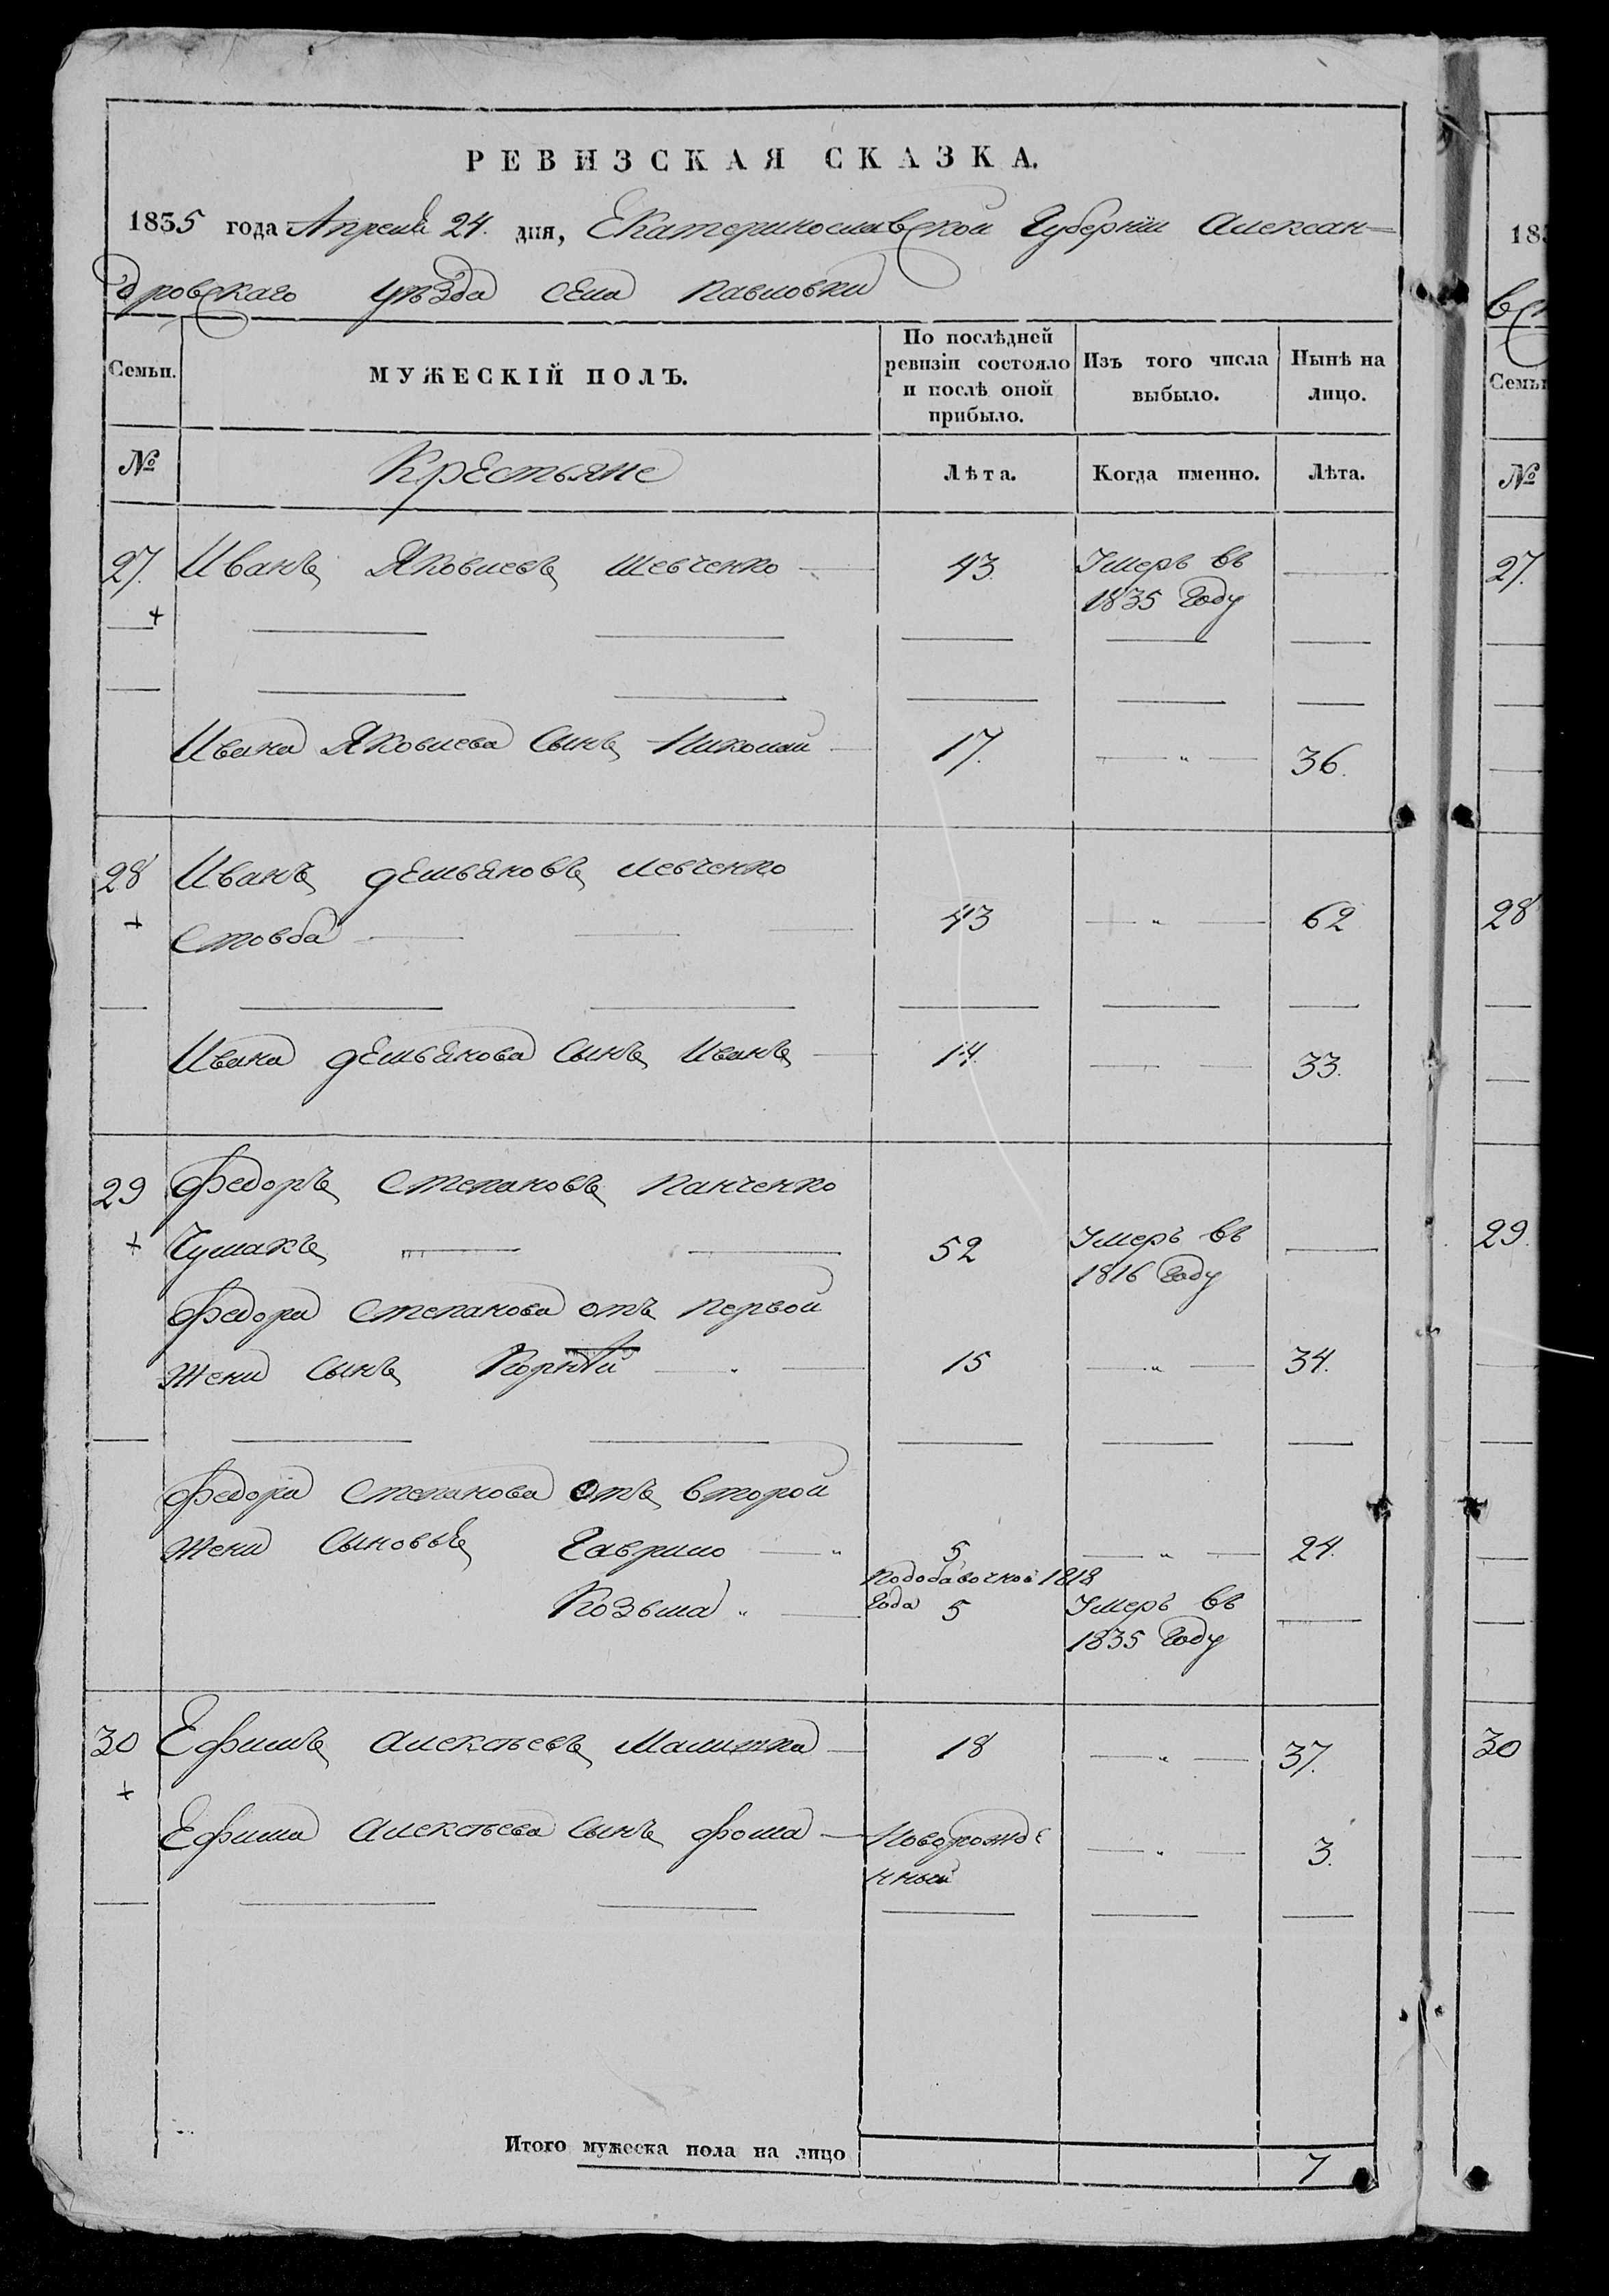 РЕВИЗСКАЯ СКАЗКА.
1835 года Апреля 24. дня, Екатеринославской Губернiи Алексан=
дровскаго уѣзда села Павловки
Семьи. МУЖЕСКІЙ ПОЛЪ. По послѣдней ревизіи состояло и послѣ оной прибыло. Изъ того числа выбыло. Нынѣ на лицо.
№ Крестьяне Лѣта. Когда именно. Лѣта.
27. Иванъ Яковлевъ Шевченко 43. Умеръ въ
1835 Году
Ивана Яковлева Сынъ Николай 17. 36.
28 Иванъ Демьяновъ Левченко
Стовба 43 62
Ивана Демьянова Сынъ Иванъ 14. 33.
29 Федоръ Степановъ Панченко
Чумакъ 52 Умеръ въ
1816 Году
Федора Степанова отъ Первой
Жени Сынъ Корнѣй 15 34.
Федора Степанова Отъ Второй
Жени Сыновья Гаврило 5 24.
Пододавочной 1818
Года
Козьма 5 Умеръ въ
1835 Году
30 Ефимъ Алексѣевъ 18 37.
Ефима Алексѣева Сынъ Фома Новорожде
нный 3.
Итого мужеска пола на лицо 7
183
Семьи
№
27.
28
29.
30